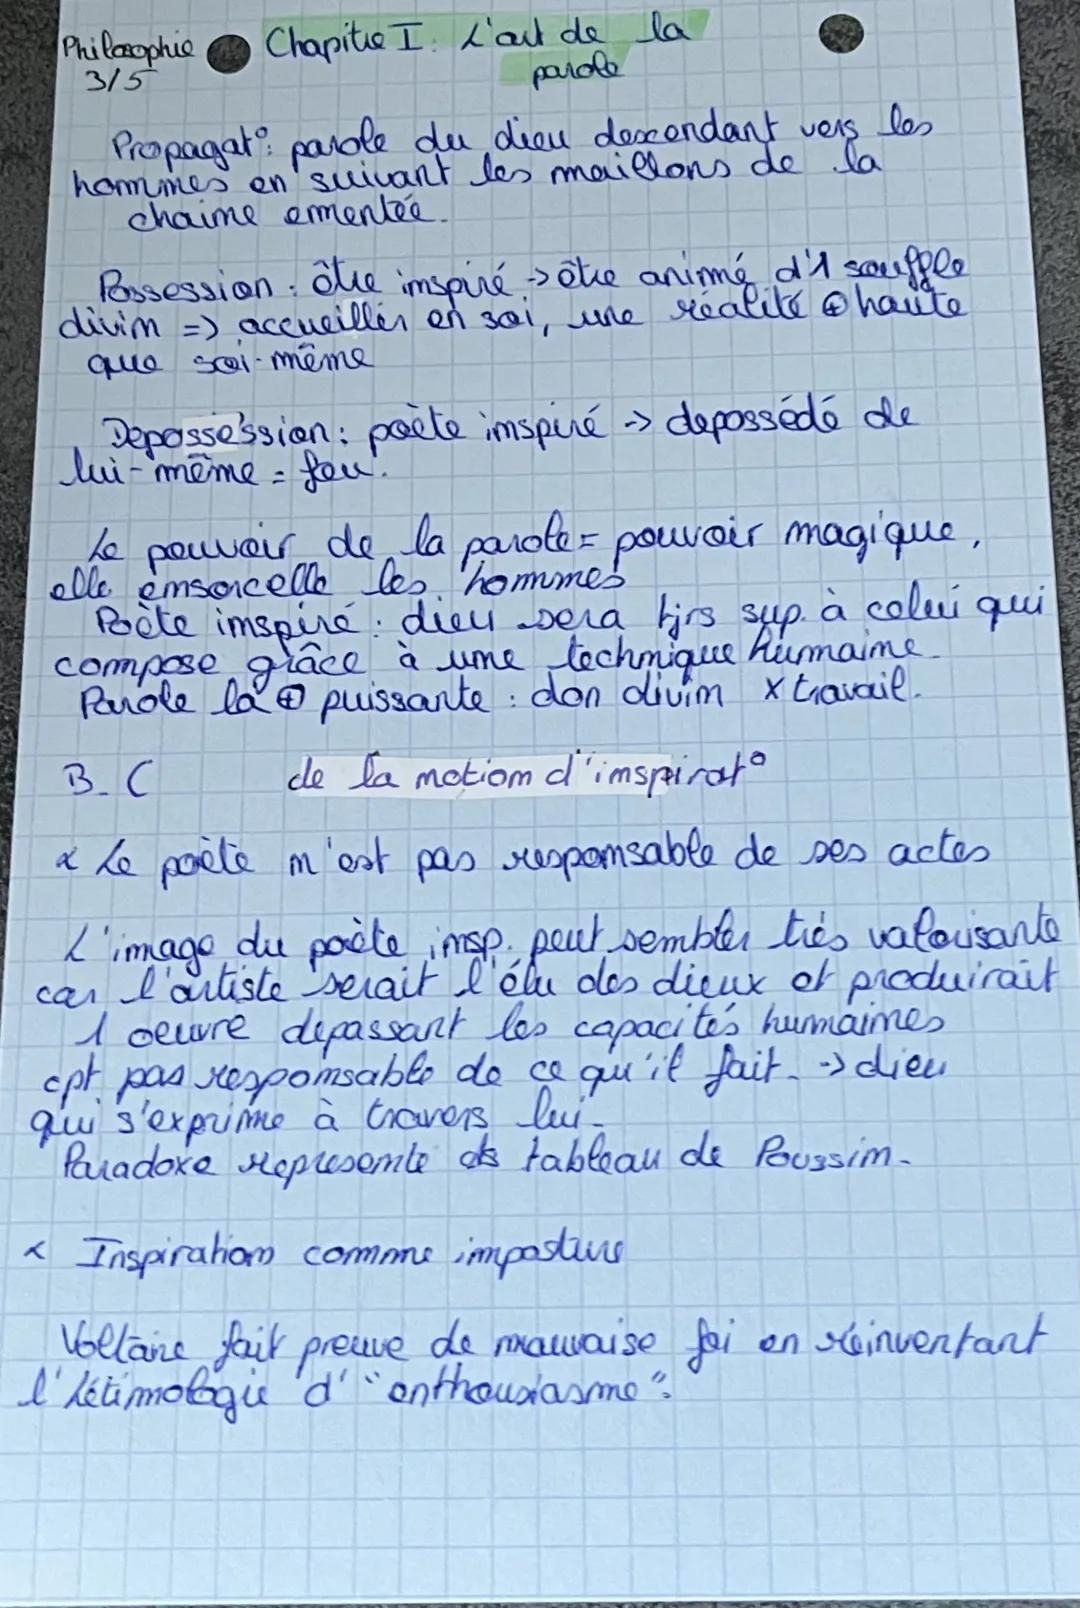 Philosophie
3/5
Chapitre I : L'art de la
parole
Propagat° : parole du dieu descendant vers les
hommes en suivant les maillons de la
chaîne
Possession : être inspiré -> être animé d'1 souffle
divin => accueillir en soi, une réalité ⊕ haute
que soi-même
Depossession : poète inspiré -> depossédé de
lui-même = fou.
Le pouvoir de la parole = pouvoir magique,
elle ensorcelle les hommes
Poète inspiré : dieu sera tjrs sup. à celui qui
compose grâce à une technique humaine.
Parole la ⊕ puissante : don divin x travail.
B. C de la notion d'inspirat°
x Le poète n'est pas responsable de ses actes
L'image du poète insp. peut sembler très valorisante
car l'artiste serait l'élu des dieux et produirait
1 oeuvre dépassant les capacités humaines
cpt pas responsable de ce qu'il fait. -> dieu
qui s'exprime à travers lui.
Paradoxe représenté ds tableau de Poussin.
x Inspiration comme imposture
Voltaire fait preuve de mauvaise foi en réinventant
l'étimologie d' "enthousiasme".